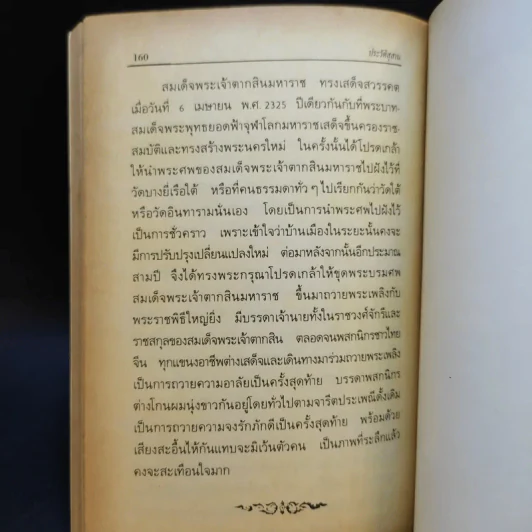 160
ประวัติสุสาน
สมเด็จพระเจ้าตากสินมหาราช ทรงเสด็จสวรรคต
เมื่อวันที่ 6 เมษายน พ.ศ. 2325 ปีเดียวกันกับที่พระบาท-
สมเด็จพระพุทธยอดฟ้าจุฬาโลกมหาราชเสด็จขึ้นครองราช-
สมบัติและทรงสร้างพระนครใหม่ ในครั้งนั้นได้โปรดเกล้า
ให้นำพระศพของสมเด็จพระเจ้าตากสินมหาราชไปฝังไว้ที่
วัดบางยี่เรือใต้ หรือที่คนธรรมดาทั่วๆ ไปเรียกกันว่าวัดใต้
หรือวัดอินทารามนั่นเอง โดยเป็นการนำพระศพไปฝังไว้
เป็นการชั่วคราว เพราะเข้าใจว่าบ้านเมืองในระยะนั้นคงจะ
มีการปรับปรุงเปลี่ยนแปลงใหม่ ต่อมาหลังจากนั้นอีกประมาณ
สามปี จึงได้ทรงพระกรุณาโปรดเกล้าให้ขุดพระบรมศพ
สมเด็จพระเจ้าตากสินมหาราช ขึ้นมาถวายพระเพลิงกับ
พระราชพิธีใหญ่ยิ่ง มีบรรดาเจ้านายทั้งในราชวงศ์จักรีและ
ราชสกุลของสมเด็จพระเจ้าตากสิน ตลอดจนพสกนิกรชาวไทย
จีน ทุกแขนงอาชีพต่างเสด็จและเดินทางมาร่วมถวายพระเพลิง
เป็นการถวายความอาลัยเป็นครั้งสุดท้าย บรรดาพสกนิกร
ต่างโกนผมนุ่งขาวกันอยู่โดยทั่วไปตามจารีตประเพณีดั้งเดิม
เป็นการถวายความจงรักภักดีเป็นครั้งสุดท้าย พร้อมด้วย
เสียงสะอื้นไห้กันแทบจะมิเว้นตัวคน เป็นภาพที่ระลึกแล้ว
คงจะสะเทือนใจมาก